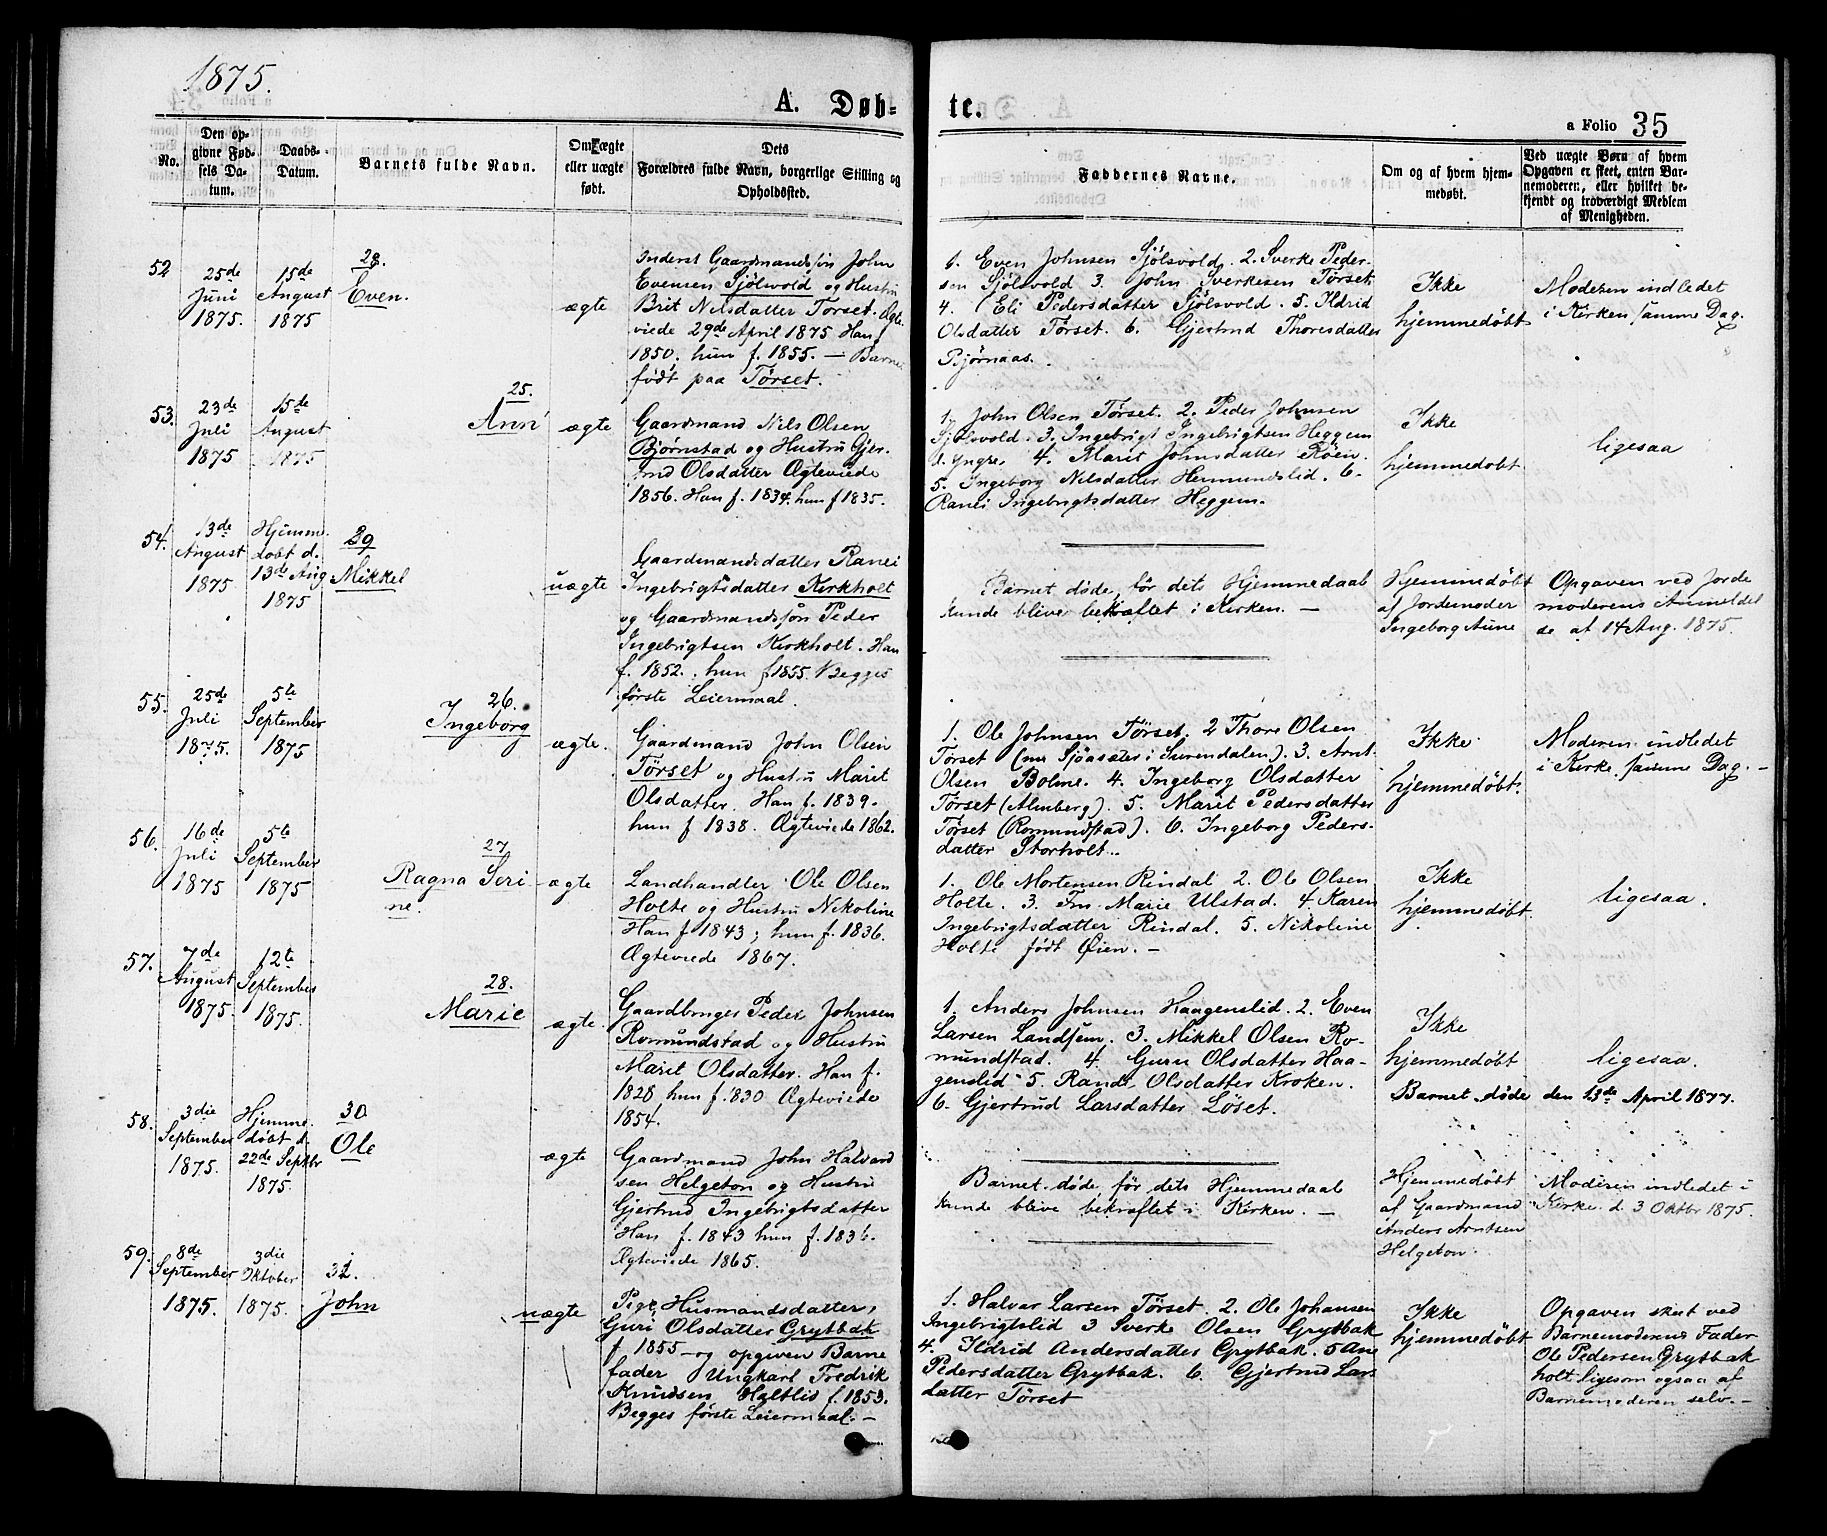 1875.
A. Døb-
te.
a Folio 35
No.
Den op-
givne Fød-
sels Da-
tum.
Daabs-
Datum.
Barnets fulde Navn.
Om ægte
eller uægte
født.
Dets
Forældres fulde Navn, borgerlige Stilling og
Opholdssted.
Faddernes Navne.
Om og af hvem hjem-
medøbt.
Ved uægte Børn af hvem
Opgaven er skeet, enten Bar-
nemoderen, eller hvilket be-
kjendt og troværdigt Medlem
af Menigheden.
52
25de
Juni
1875.
15de
August
1875
28.
Even.
ægte
Inderst Gaardmandssøn John
Evensen Sjølsvold og Hustru
Brit Nilsdatter Tørset. Ægte
viede 29de April 1875 Han f.
1850, hun f. 1855. — Barne
født paa Tørset.
1. Even Johnsen Sjölsvold, 2. Sverke Peder-
sen Sjölsvold 3. John Sverkesen Tørset,
4. Eli Pedersdatter Sjölsvold. 5. Ildrid
Olsdatter Tørset. 6. Gjertrud Thoresdatter
Bjørnaas.
Ikke
hjemmedøbt
Moderen indledet
i Kirken samme Dag.
53.
23de
Juli
1875
15de
August
1875
25.
Ann
ægte
Gaardmand Nils Olsen
Bjørnstad og Hustru Gjer-
trud Olsdatter Ægteviede
1856. Han f. 1834. hun f 1835.
1, John Olsen Tørset. 2. Peder Johnsen
Sjölsvold. 3. Ingebrigt Ingebrigtsen Heggem
d. yngre, 4. Marit Johnsdatter Røen.
5. Ingeborg Nilsdatter Hermundslid. 6.
Ranei Ingebrigtsdatter Heggem.
Ikke
hjemmedøbt
ligesaa
54.
13de
August
1875.
Hjemme-
døbt d.
13de Aug
1875
29
Mikkel
uægte
Gaardmandsdatter Ranei
Ingebrigtsdatter Kirkholt
og Gaardmandssøn Peder
Ingebrigtsen Kirkholt. Han
f. 1852. hun f 1855. Begges
første Leiermaal.
Barnet døde, før dets Hjemmedaab
kunde blive bekræftet i Kirken. —
Hjemmedøbt
af Jordemoder
Ingeborg Aune
Opgaven ved Jorde
moderens Anmeldel
se af 14 Aug. 1875.
55.
25de
Juli
1875.
5te
September
1875
26.
Ingeborg
ægte.
Gaardmand John Olsen
Tørset og Hustru Marit
Olsdatter. Han f. 1839.
hun f 1838. Ægteviede 1862.
1. Ole Johnsen Tørset. 2 Thore Olsen
Tørset (nu Sjøasæter i Surendalen). 3. Arnt
Olsen Bolme. 4. Ingeborg Olsdatter
Tørset (Almberg). 5. Marit Pedersdatter
Tørset (Romundstad). 6. Ingeborg Peders-
datter Storholt.
Ikke
hjemmedøbt.
Moderen indledet
i Kirke samme Dag. —
56.
16de
Juli
1875
5te
September
1875
27
Ragna Seri-
ne.
ægte
Landhandler Ole Olsen
Holte og Hustru Nikoline
Han f 1843; hun f. 1836.
Ægteviede 1867.
1. Ole Mortensen Rindal 2. Ole Olsen
Holte. 3. Fru Marie Ulstad. 4 Karen
Ingebrigtsdatter Rindal. 5. Nikoline
Holte født Øien. —
Ikke
hjemmedøbt.
ligesaa.
57.
7de
August
1875.
12te
September
1875.
28.
Marie
ægte.
Gaardbruger Peder Johnsen
Romundstad og Hustru
Marit Olsdatter. Han f.
1828 hun f. 1830 Ægteviede
1854.
1. Anders Johnsen Haagenslid. 2. Even
Larsen Landsem. 3. Mikkel Olsen Ro-
mundstad. 4. Guru Olsdatter Haa-
genslid 5. Randi Olsdatter Kroken.
6. Gjertrud Larsdatter Løset.
Ikke
hjemmedøbt
ligesaa.
Barnet døde den 13de April 1877.
58.
3die
September
1875.
Hjemme-
døbt d.
22de Septbr
1875.
30
Ole
ægte
Gaardmand John Halvard
sen Helgeton og Hustru
Gjertrud Ingebrigtsdatter
Han f. 1843 hun f. 1836.
Ægteviede 1865.
Barnet døde, før dets Hjemmedaab
kunde blive bekræftet i Kirken. —
Hjemmedøbt
af Gaardmand
Anders Arntsen
Helgeton.
Moderen indledet i
Kirke d. 3 Oktbr 1875.
59.
8de
September
1875.
3die
Oktober
1875.
31.
John
uægte
Pige, Husmandsdatter,
Guri Olsdatter Grytbak
f. 1855 og opgiven Barne
fader Ungkarl Fredrik
Knudsen Haltlid f. 1853.
Begges første Leiermaal. —
1. Halvar Larsen Tørset. 2. Ole Johansen
Ingebrigtslid 3 Sverke Olsen Grytbak
4. Ildrid Andersdatter Grytbak. 5 Ane
Pedersdatter Grytbak. 6. Gjertrud Lars
datter Tørset
Ikke
hjemmedøbt
Opgaven sket ved
Barnemoderens Fader
Ole Pedersen Grytbak
holt ligesom ogsaa af
Barnemoderen selv. —